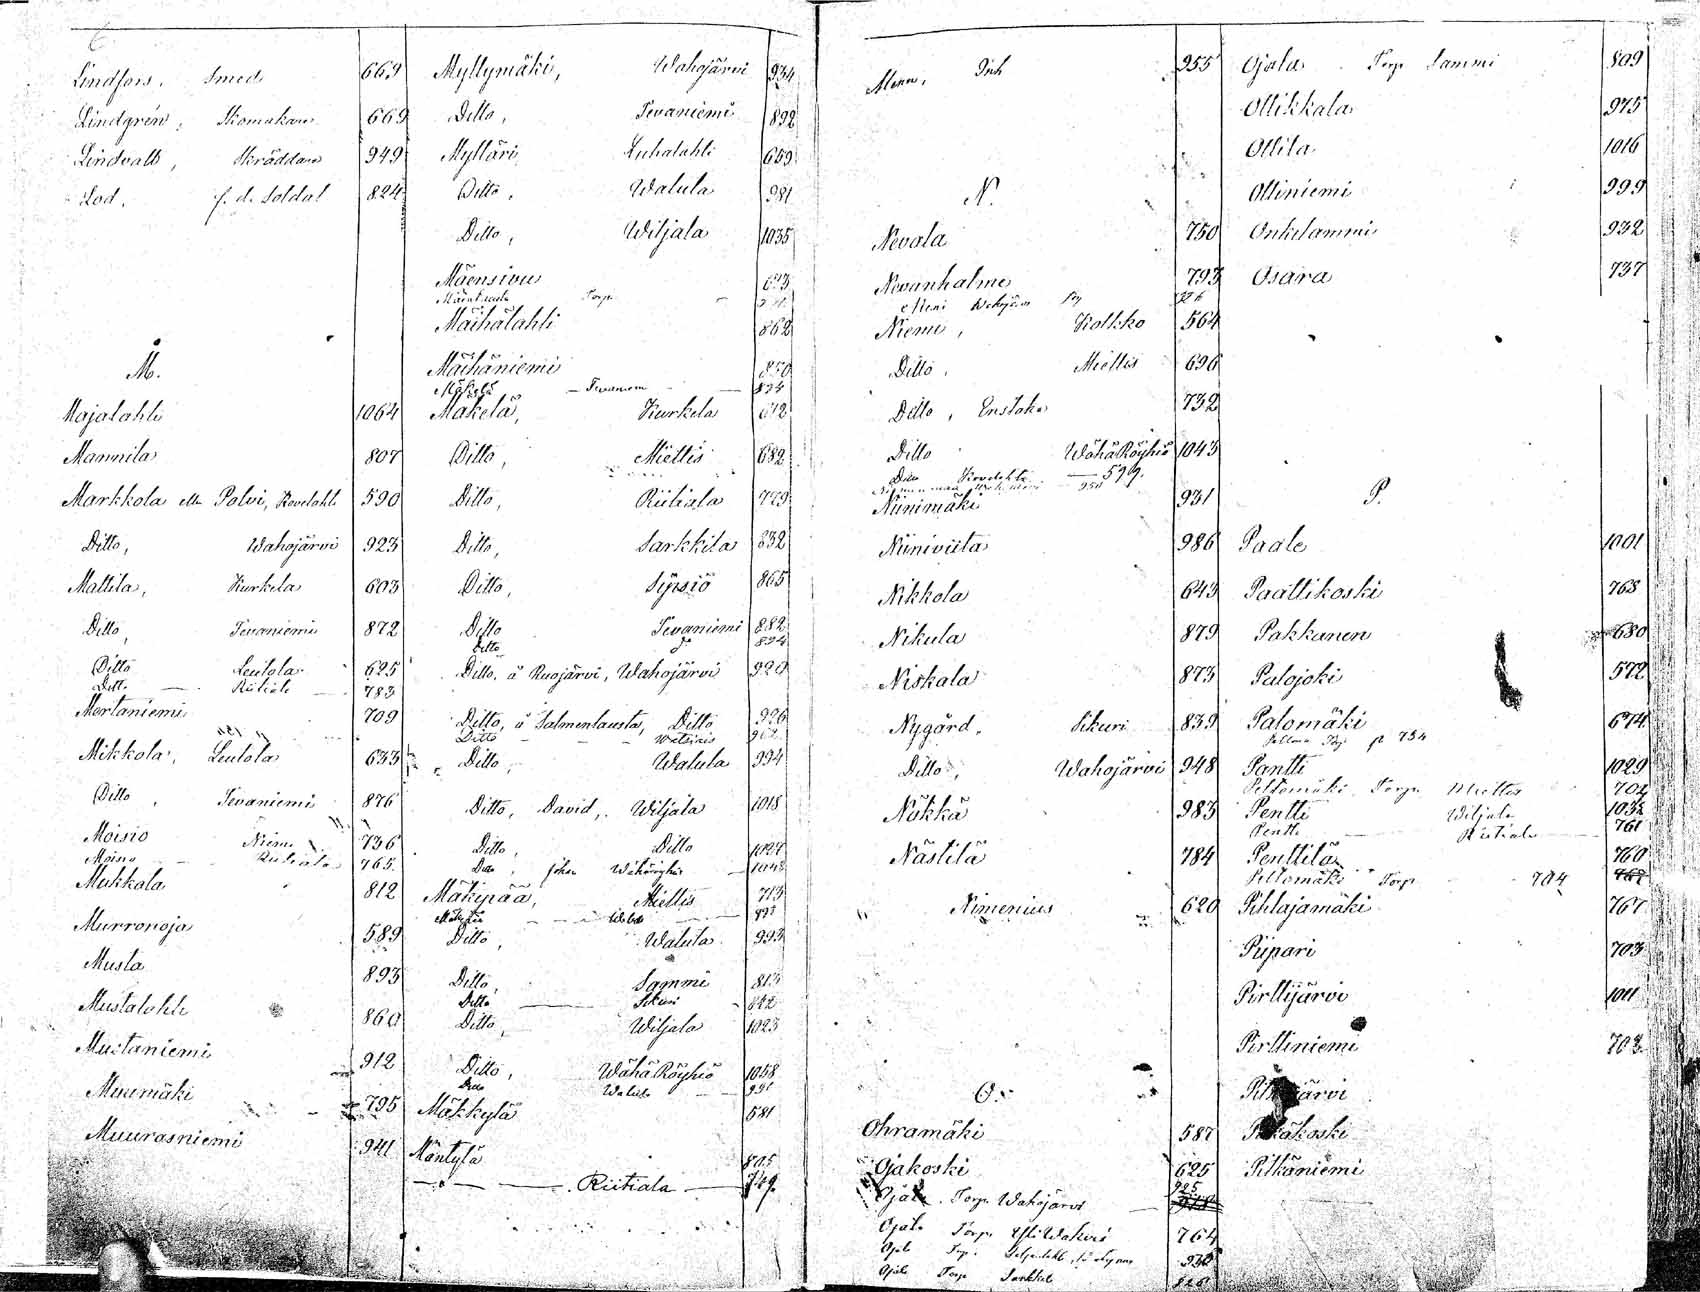 6
Lindfors, Smed 669
Lindgrén, Skomakare 669
Lindvall, Skräddare 949
Lod, f. d. Soldat 824
M.
Majalahti 1064
Mannila 807
Markkola Polvi, Kovelahti 590
Ditto, Wahojärvi 923
Mattila, Kurkela 603
Ditto, Tevaniemi 872
Ditto Leutola 625
Ditto — Riitiala — 783
Mertaniemi 709
Mikkola, Leutola 633
Ditto, Tevaniemi 876
Moisio Niemi 736
Moisio Riitiala 765
Mukkala 812
Murronoja 589
Musta 893
Mustalahti 860
Mustaniemi 912
Muumäki 795
Muurasniemi 941
Myllymäki, Wahojärvi 934
Ditto, Tevaniemi 892
Mylläri, Luhalahti 659
Ditto, Walula 981
Ditto, Wiljala 1035
Mäensivu 693
Torp
Mäihälahti 862
Mäihäniemi 850
Mäkelä — Tevaniemi — 894
Mäkelä, Kurkela 612
Ditto, Miettis 682
Ditto, Riitiala 779
Ditto, Sarkkila 832
Ditto, Sipsiö 865
Ditto Tevaniemi 882
Ditto do 894
Ditto, å Ruojärvi, Wahojärvi 920
Ditto, å Salmentausta, Ditto 926
Ditto
Ditto, Walula 994
Ditto, David, Wiljala 1018
Ditto, Ditto 1027
Ditto, Johan Wähäröyhiö 1048
Mäkipää, Miettis 713
Ditto, Walula 993
Ditto, Sammi 813
Ditto — Sikuri 842
Ditto, Wiljala 1023
Ditto, WähäRöyhiö 1058
Ditto Walula 991
Mäkkylä 581
Mäntylä 805
— Riitiala — 749
Inh 955
N.
Nevala 750
Nevanhalme 793
Niemi Wahojärvi Torp 926
Niemi, Kolkko 564
Ditto, Miettis 696
Ditto, Enstaka 732
Ditto WähäRöyhiö 1043
Ditto Kovelahti — 599.
Niinimäki 931
Niiniviita 986
Nikkola 643
Nikula 879
Niskala 873
Nygård, Sikuri 839
Ditto, Wahojärvi 948
Nökkä 983
Nästilä 784
Nimenius 620
O.
Ohramäki 587
Ojakoski 625
Ojala Torp Wahojärvi 925
Ojala Torp Wahveri 764
Ojala Torp
Ojala Torp Sarkkila 826
Ojala Torp Sammi 809
Ollikkala 975
Ollila 1016
Olliniemi 999
Onkilammi 932
Osara 737
P.
Paale 1001
Paattikoski 768
Pakkanen 680
Palojoki 572
Palomäki 674
Torp p 734
Pantti 1029
Peltomäki Torp Miettis 704
Pentti Wiljala 1032
Pentti — Riitiala — 761
Penttilä 760
Peltomäki Torp 704
Pihlajamäki 767
Piipari 703
Pirttijärvi 1011
Pirttiniemi 703
Pitkäjärvi
Pitkäkoski
Pitkäniemi